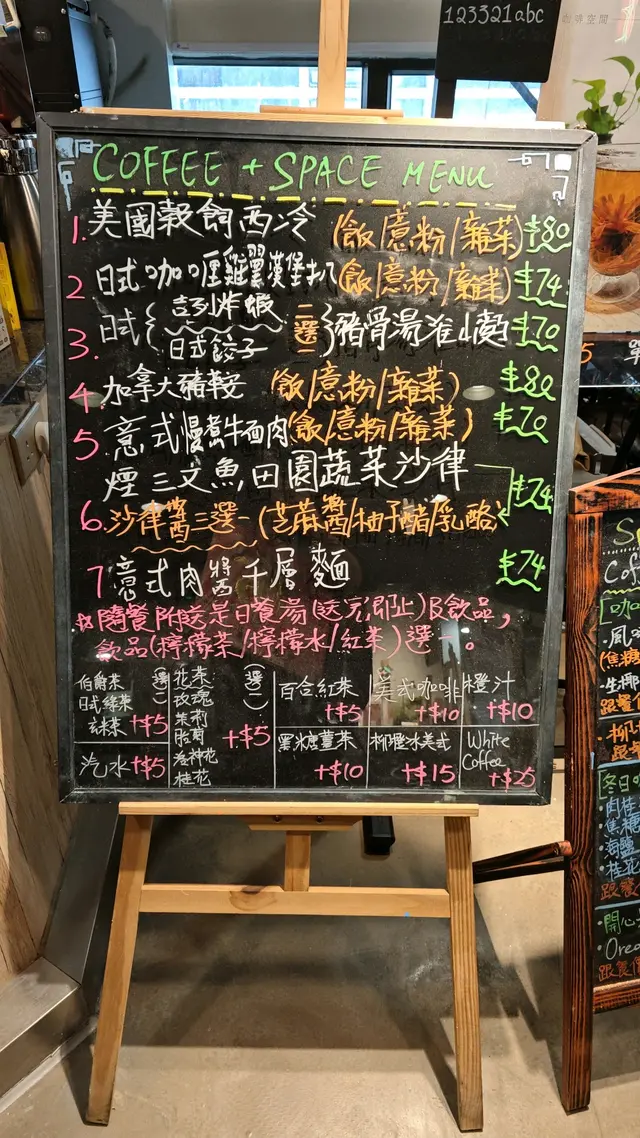 123321abc
咖啡空間
COFFEE + SPACE MENU
1. 美國穀飼西冷 (飯/意粉/雜菜) $80
2 日式咖喱雞翼漢堡扒 (飯/意粉/雜菜) $74
3. 日式{吉列炸蝦 日式餃子 二選一}豬骨湯淮山麵 $70
4. 加拿大豬鞍 (飯/意粉/雜菜) $80
5 意式慢煮牛面肉(飯/意粉/雜菜) $70
煙三文魚田園蔬菜沙律
6. 沙律醬三選一(芝麻醬/柚子醋/乳酪) $74
7 意式肉醬千層麵 $74
隨餐附送是日餐湯(送完即止)及飲品,
飲品(檸檬茶/檸檬水/紅茶)選一。
伯爵茶
日式綠茶
玄米茶
(選一)
+$5
花茶
玫瑰
茉莉
洛神花
桂花
(選一)
+$5
百合紅茶
+$5
美式咖啡
+$10
橙汁
+$10
汽水 +$5
黑糖薑茶
+$10
柳橙冰美式
+$15
White
Coffee
+$25
冬日
Orea